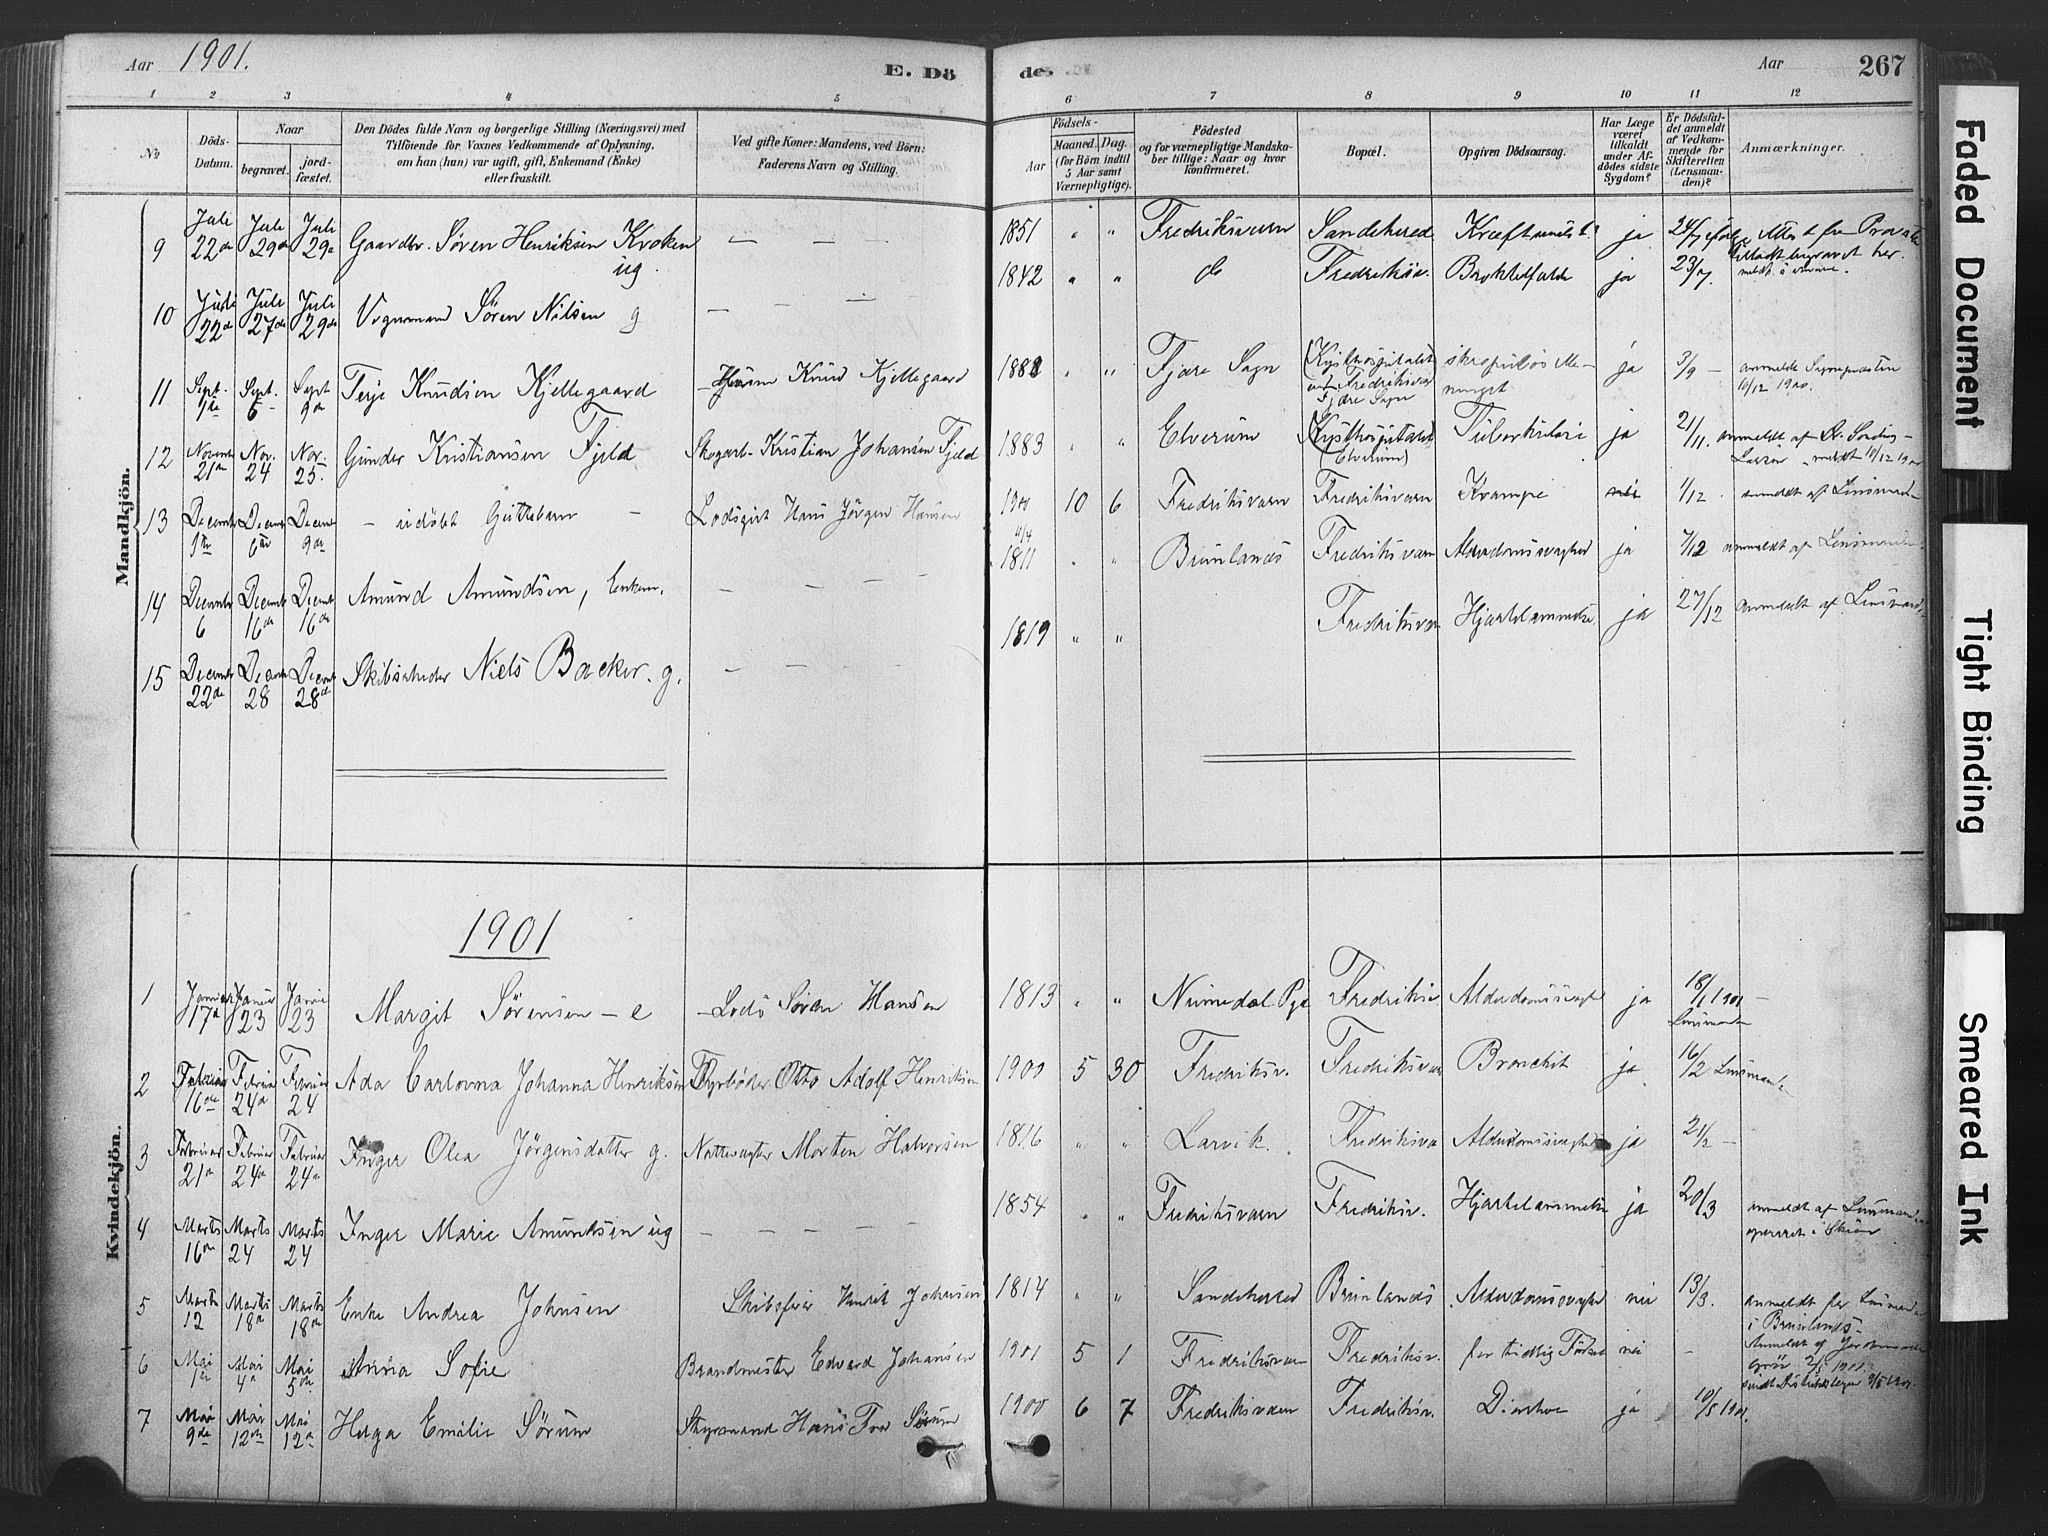 Aar 1901.
E. Dö
de.
Aar
267
1 2 3 4 5
6 7 8 9 10 11 12
No
Döds-
Datum.
Naar
begravet.
jord-
fæstet.
Den Dödes fulde Navn og borgerlige Stilling (Næringsvei) med
Tilföiende for Voxnes Vedkommende af Oplysning,
om han (hun) var ugift, gift, Enkemand (Enke)
eller fraskilt.
Ved gifte Koner: Mandens, ved Börn:
Faderens Navn og Stilling.
Födsels-
Aar
Maaned. Dag.
(for Börn indtil
5 Aar samt
Værnepligtige).
Födested
og for værnepligtige Mandska-
ber tillige: Naar og hvor
konfirmeret.
Bopæl.
Opgiven Dödsaarsag.
Har Læge
været
tilkaldt
under Af-
dödes sidste
Sygdom?
Er Dödsfal-
det anmeldt
af Vedkom-
mende for
Skifteretten
(Lensman-
den)?
Anmærkninger.
Mandkjön.
9 Juli 22de Juli 29de Juli 29de Gaardbr. Sören Henriksen Kroken ug. — — 1851 " " Fredriksværn Sandeherred ja
10 Juli 22de Juli 27de Juli 29de Sören Nilsen g — — 1842 " " do Fredriksv. ja 23/7.
11 Sept. 1ste Sept. 5 Sept 9de Terje Knudsen Kjellegaard Knud Kjellegaard " " Fjære Sogn (Kysthospitalet ved Fredriksvær Fjære Sogn ja 3/9 –
12 Novemb 21de Nov. 24 Nov. 25. Gunder Kristiansen Fjeld Skogarb. Kristian Johansen Fjeld 1883 " " Elverum (Kysthospitalet Elverum) Tuberkulose ja 21/11. anmeldt af
13 Decemb 1ste Decemb Decemb 9de – udöbt Guttebarn – Hans Jörgen Hansen 1900 10 6 Fredriksværn Fredriksværn Krampe nei 1/12 anmeldt af Lensmand
14 Decembr 6 Decembr 16de Decembr 16de Amund Amundsen, Enkem. — — — 1811 " " Brunlanes Fredriksværn Alderdomssvaghed ja 7/12 anmeldt af Lensmanden
15 Decembr 22de Decemb 28 Decembr 28de Skibsreder Niels Backer. g. — — — 1819 " " Fredriksværn Hjertelammelse ja 27/12 anmeldt af Lensmand
Kvindekjön.
1901
1 Januar 17de Januar 23 Januar 23 Margit Sörensen – e – Lods Sören Hansen 1813 " " Numedal Pgd Fredriksv Alderdomssvagh ja 18/1 1901 Lensmanden
2 Februar 16de Februar 24de Februar 24 Ada Carlovna Johanna Henriksen Fyrböder Otto Adolf Henriksen 1900 5 30 Fredriksv. Fredriksværn Bronchit ja 16/2 Lensmanden
3 Februar 21de Februar 24de Februar 24de Inger Olea Jörgensdatter g. Nattevægter Morten Halvorsen 1816 " " Larvik. Fredriksvæ Alderdomssvaghed ja 21/2 –
4 Marts 16de Marts 24 Marts 24 Inger Marie Amundsen ug — — — — 1854 " " Fredriksværn Fredriksv. Hjertelammelse ja 20/3 anmeldt af Lensmanden
5 Marts 12 Marts 18de Marts 18de Enke Andrea Johnsen Henrik Johnsen 1814 " " Sandeherred Brunlanes Alderdomssvaghed nei 13/3. anmeldt for Lensmanden i Brunlanes.
6 Mai 1ste Mai 4de Mai 5de Anna Sofie Brandmester Edvard Johansen 1901 5 1 Fredriksværn Fredriksv. for tidlig Födsel nei – Anmeldt af Jordmoder
7 Mai 9de Mai 12de Mai 12de Helga Emilie Sörum Styrmand Hans Sörum 1900 6 7 Fredriksværn Fredriksv. Diarrhoe ja 10/5 1901.
Faded Document
Tight Binding
Smeared Ink